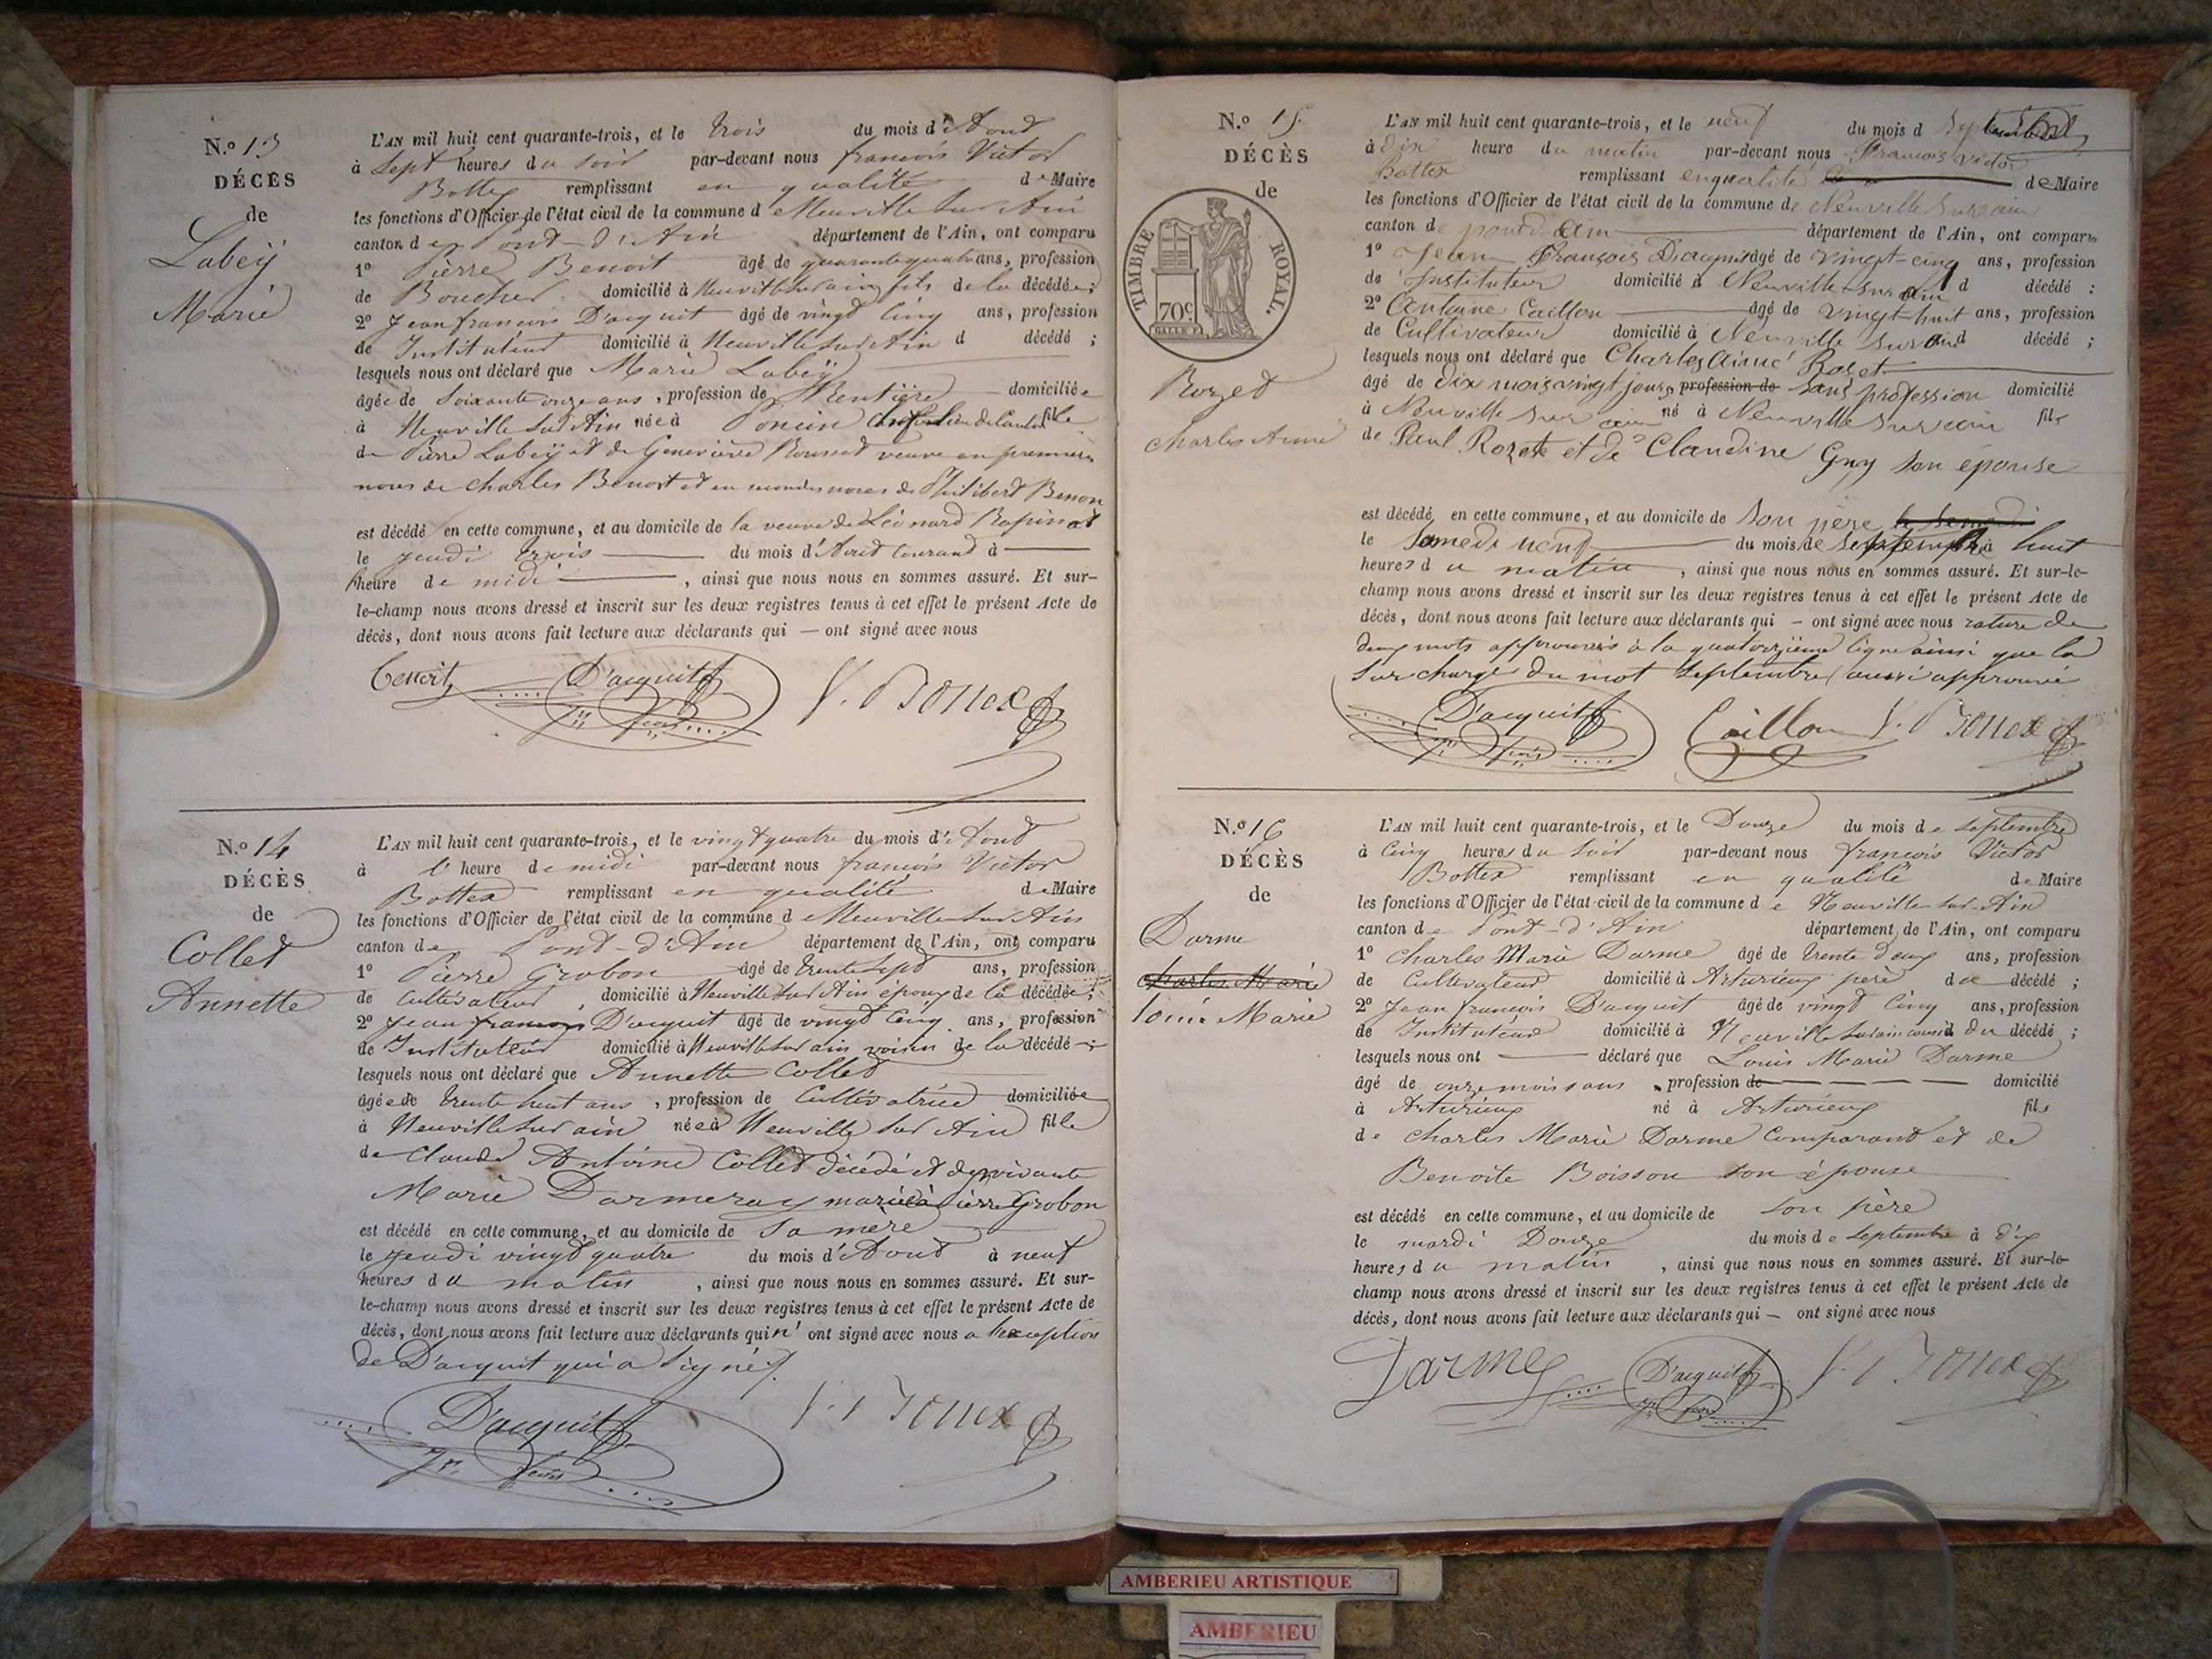 N.o 13
DÉCÈS
de
Labeÿ
Marie
L'AN mil huit cent quarante-trois, et le trois du mois d'Aout
à Sept heures du soir par-devant nous françois Victor
Bottex remplissant en qualité de Maire
les fonctions d'Officier de l'état civil de la commune de Neuville sur Ain
canton de Pont-d'Ain département de l'Ain, ont comparu
1o Pierre Benoit âgé de quarante quatre ans, profession
de Boucher domicilié à Neuville sur ain fils de la décédée;
2o Jean francois D'acquit âgé de vingt cinq ans, profession
de Instituteur domicilié à Neuville sur Ain d décédé ;
lesquels nous ont déclaré que Marie Labeÿ
âgée de Soixante onze ans, profession de Rentière domiciliée
à Neuville sur Ain née à Poncin chef lieu de canton fille
de Pierre Labeÿ et de Geneviève Rousset veuve en premières
noces de Charles Benoit et en secondes noces de Philibert Benon
est décédé en cette commune, et au domicile de la veuve de Léonard Rapinat
le jeudi trois du mois d'Aout courant à
heure de midi, ainsi que nous nous en sommes assuré. Et sur-
le-champ nous avons dressé et inscrit sur les deux registres tenus à cet effet le présent Acte de
décès, dont nous avons fait lecture aux déclarants qui — ont signé avec nous
Benoit D'acquit V. Bottex
jn fcois
N.o 14
DÉCÈS
de
Collet
Annette
L'AN mil huit cent quarante-trois, et le vingt quatre du mois d'Aout
à l' heure de midi par-devant nous francois Victor
Bottex remplissant en qualité de Maire
les fonctions d'Officier de l'état civil de la commune de Neuville sur Ain
canton de Pont-d'Ain département de l'Ain, ont comparu
1o Pierre Grobon âgé de trente sept ans, profession
de cultivateur, domicilié à Neuville sur Ain époux de la décédée;
2o Jean francois D'acquit âgé de vingt cinq ans, profession
de Instituteur domicilié à Neuville sur ain voisin de la décédé ;
lesquels nous ont déclaré que Annette Collet
âgée de trente huit ans, profession de Cultivatrice domiciliée
à Neuville sur ain née à Neuville sur Ain fille
de Claude Antoine Collet décédé et de vivante
Marie Darmeray mariée à Pierre Grobon
est décédé en cette commune, et au domicile de Sa mère
le jeudi vingt quatre du mois d'Aout à neuf
heures du matin, ainsi que nous nous en sommes assuré. Et sur-
le-champ nous avons dressé et inscrit sur les deux registres tenus à cet effet le présent Acte de
décès, dont nous avons fait lecture aux déclarants qui n' ont signé avec nous a l'exception
de D'acquit qui a signé.
D'acquit V. Bottex
jn fcois
N.o 15
DÉCÈS
de
TIMBRE ROYAL.
70c
Rozet
Charles Aimé
L'AN mil huit cent quarante-trois, et le neuf du mois d Septembre
à dix heure du matin par-devant nous François victor
Bottex remplissant en qualité de Maire
les fonctions d'Officier de l'état civil de la commune de Neuville sur ain
canton de pont d'ain département de l'Ain, ont comparu
1o Jean François Dacquit âgé de vingt-cinq ans, profession
de Instituteur domicilié à Neuville sur ain d décédé :
2o Antoine Caillon âgé de vingt huit ans, profession
de Cultivateur domicilié à Neuville sur ain d décédé ;
lesquels nous ont déclaré que Charles Aimé Rozet
âgé de dix mois vingt jours, profession de sans profession domicilié
à Neuville sur ain né à Neuville sur ain fils
de Paul Rozet et de Claudine Guy son épouse
est décédé en cette commune, et au domicile de son père le Samedi
le Samedi neuf du mois de Septembre à huit
heures du matin, ainsi que nous nous en sommes assuré. Et sur-le-
champ nous avons dressé et inscrit sur les deux registres tenus à cet effet le présent Acte de
décès, dont nous avons fait lecture aux déclarants qui — ont signé avec nous rature de
deux mots approuvés à la quatorzième ligne ainsi que la
surcharge du mot Septembre aussi approuvé
D'acquit Caillon V. Bottex
jn fcois
N.o 16
DÉCÈS
de
Darme
Charles Marie
Louis Marie
L'AN mil huit cent quarante-trois, et le Douze du mois de Septembre
à Cinq heures du Soir par-devant nous françois Victor
Bottex remplissant en qualité de Maire
les fonctions d'Officier de l'état civil de la commune de Neuville sur Ain
canton de Pont-d'Ain département de l'Ain, ont comparu
1o Charles Marie Darme âgé de trente deux ans, profession
de Cultivateur domicilié à Arturieux père du décédé ;
2o Jean francois D'acquit âgé de vingt cinq ans, profession
de Instituteur domicilié à Neuville sur ain du décédé ;
lesquels nous ont déclaré que Louis Marie Darme
âgé de onze mois ans, profession de domicilié
à Arturieux né à Arturieux fils
de Charles Marie Darme Comparant et de
Benoite Boisson son épouse
est décédé en cette commune, et au domicile de son père
le mardi Douze du mois de Septembre à dix
heures du matin, ainsi que nous nous en sommes assuré. Et sur-le-
champ nous avons dressé et inscrit sur les deux registres tenus à cet effet le présent Acte de
décès, dont nous avons fait lecture aux déclarants qui — ont signé avec nous
Darme D'acquit V. Bottex
jn fcois
AMBERIEU ARTISTIQUE
AMBERIEU